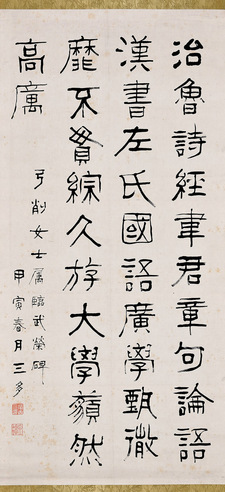 治魯詩經韋君章句論語
漢書左氏國語廣學甄微
靡不貫綜久斿大學藐然
高厲
弓削女士属臨武榮碑
甲寅春月三多